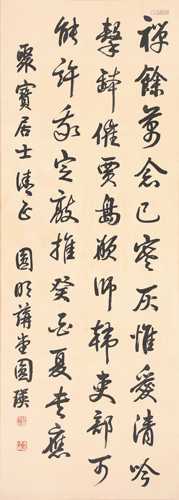 禅餘萬念已寒灰惟愛清吟
擊缽催賈島願師韩吏部可
能許我定敲推癸西夏書應
聚寶居士清正 圆明講堂圓瑛